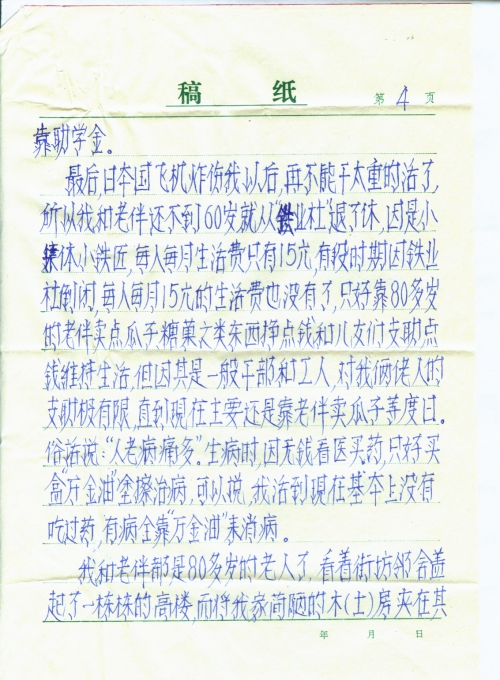 稿 纸
第 4 页
靠助学金。
最后,日本国飞机炸伤我以后,再不能干太重的活了,
所以我和老伴还不到60岁就从“铁业社”退了休,因是小
集体小铁匠,每人每月生活费只有15元,有段时期因铁业
社倒闭,每人每月15元的生活费也没有了,只好靠80多岁
的老伴卖点瓜子糖菓之类东西挣点钱和儿女们支助点
钱维持生活,但因其是一般干部和工人,对我俩佬人的
支助极有限,直到现在主要还是靠老伴卖瓜子等度日。
俗话说:“人老病痛多”。生病时,因无钱看医买药,只好买
盒“万金油”塗擦治病,可以说,我活到现在基本上没有
吃过药,有病全靠“万金油”来消病。
我和老伴都是80多岁的老人了,看着街坊邻舍盖
起了一栋栋的高楼,而将我家简陋的木(土)房夹在其
年 月 日